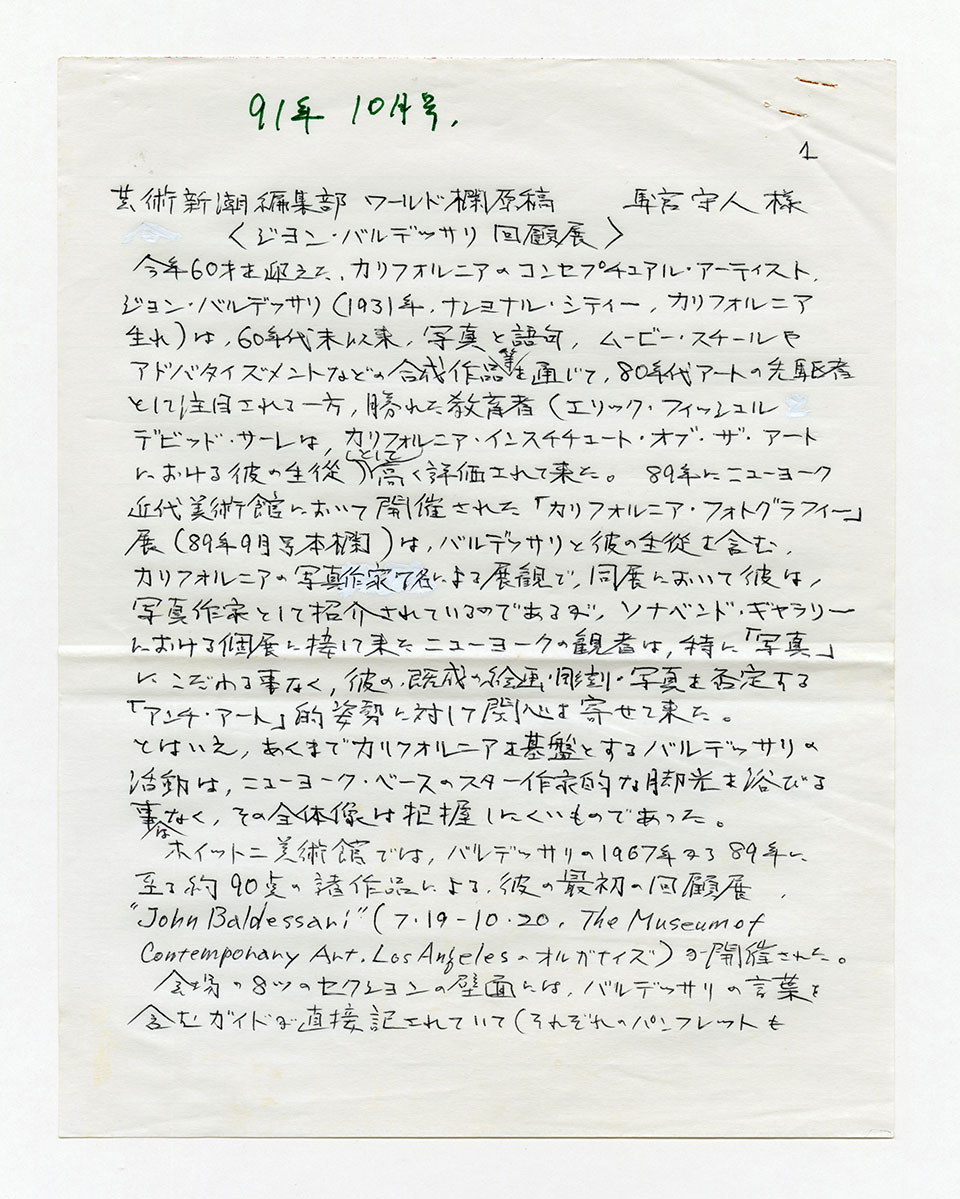 91年 10月号.
1
芸術新潮編集部 ワールド欄原稿 馬宮守人 様
〈ジョン・バルデッサリ 回顧展〉
今年60才を迎えた、カリフォルニアのコンセプチュアル・アーティスト、
ジョン・バルデッサリ(1931年、ナショナル・シティー、カリフォルニア
生れ)は、60年代末以来、写真と語句、ムービー・スチールや
アドバタイズメントなどの合成作品等を通じて、80年代アートの先駆者
として注目される一方、勝れた教育者(エリック・フィッシュル
デビッド・サーレは、カリフォルニア・インスチチュート・オブ・ザ・アート
における彼の生徒)として高く評価されて来た。 89年にニューヨーク
近代美術館において開催された「カリフォルニア・フォトグラフィー」
展(89年9月号本欄)は、バルデッサリと彼の生徒を含む、
カリフォルニアの写真作家7名による展観で、同展において彼は、
写真作家として紹介されているのであるが、ソナベンド・ギャラリー
における個展に接して来たニューヨークの観者は、特に「写真」
にこだわる事なく、彼の、既成の絵画・彫刻・写真を否定する
「アンチ・アート」的姿勢に対して関心を寄せて来た。
とはいえ、あくまでカリフォルニアを基盤とするバルデッサリの
活動は、ニューヨーク・ベースのスター作家的な脚光を浴びる
事はなく、その全体像は把握しにくいものであった。
ホイットニ美術館では、バルデッサリの1967年から89年に
至る約90点の諸作品による、彼の最初の回顧展、
"John Baldessari" (7・19-10・20, The Museum of
Contemporary Art, Los Angelesのオルガナイズ)が開催された。
会場の8ツのセクションの壁面には、バルデッサリの言葉を
含むガイドが直接記されていて(それぞれのパンフレットも